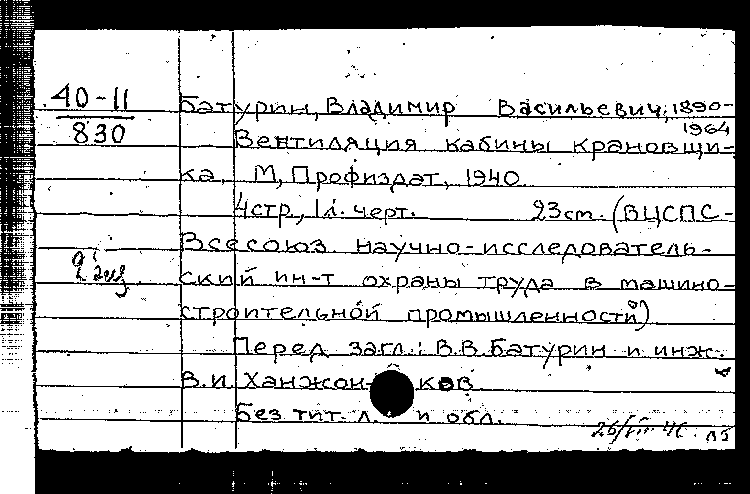 40-11
830
Батурин, Владимир Васильевич, 1890-
1964
Вентиляция кабины крановщи-
ка. М, Профиздат, 1940.
4стр., 1л. черт. 23cm. (ВЦСПС-
Всесоюз. научно-исследователь-
2 экз.
ский ин-т охраны труда в машино-
строительной промышленности)
Перед загл.: В.В. Батурин и инж.
В.И. Ханжонков.
Без тит. л. и обл.
26/VII